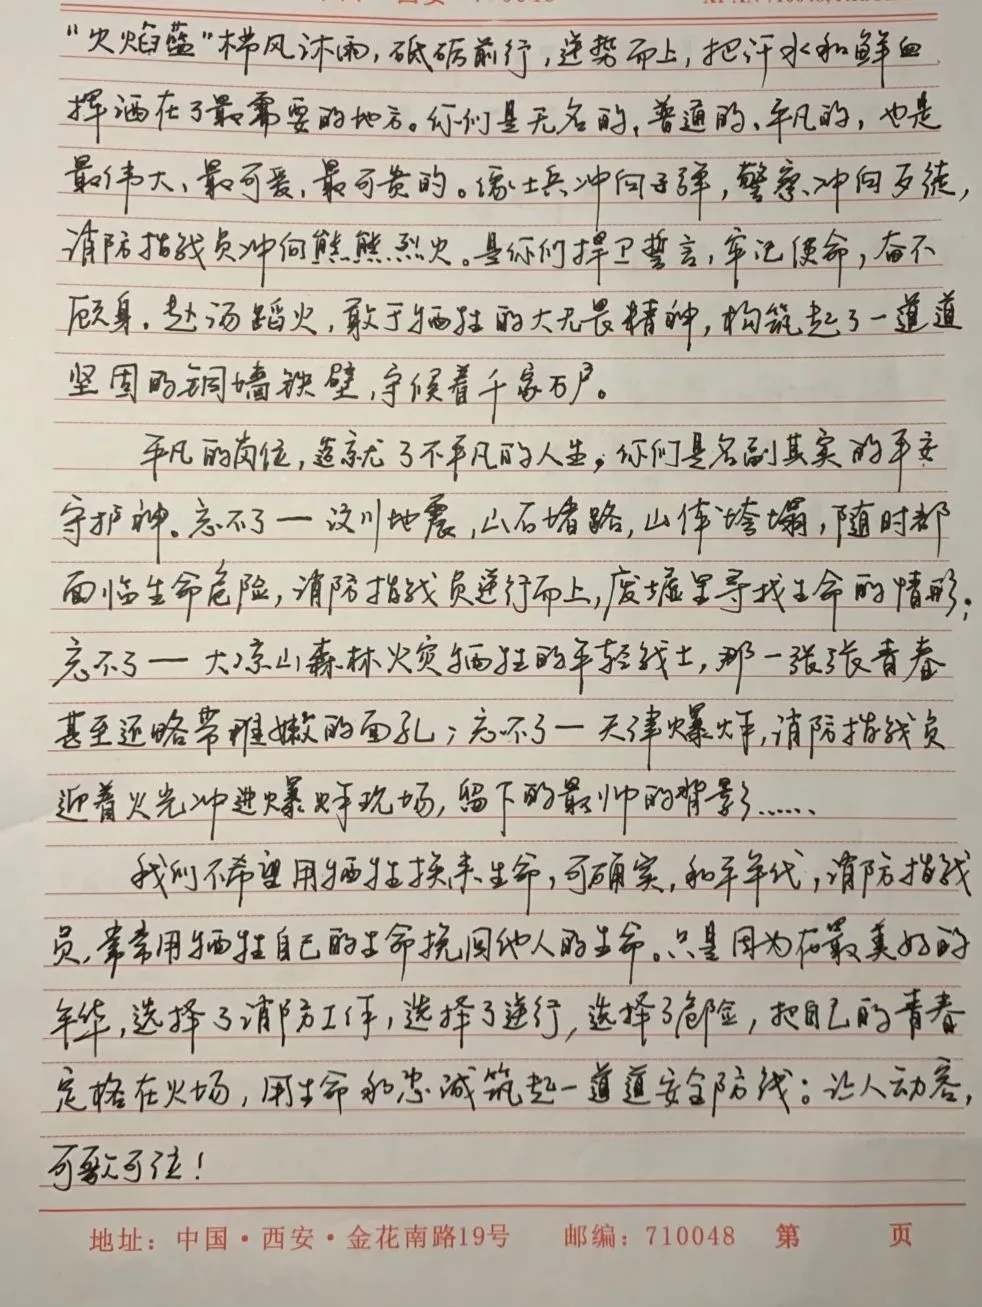 “火焰蓝”栉风沐雨，砥砺前行，逆势而上，把汗水和鲜血
挥洒在了最需要的地方。你们是无名的、普通的、平凡的，也是
最伟大、最可爱、最可贵的。像士兵冲向子弹，警察冲向歹徒，
消防指战员冲向熊熊烈火。是你们捍卫誓言，牢记使命，奋不
顾身、赴汤蹈火，敢于牺牲的大无畏精神，构筑起了一道道
坚固的铜墙铁壁，守候着千家万户。
平凡的岗位，造就了不平凡的人生，你们是名副其实的平安
守护神。忘不了一汶川地震，山石堵路，山体垮塌，随时都
面临生命危险，消防指战员逆行而上，废墟里寻找生命的情形；
忘不了一大凉山森林火灾牺牲的年轻战士，那一张张青春
甚至还略带稚嫩的面孔；忘不了一天津爆炸，消防指战员
迎着火光冲进爆炸现场，留下的最帅的背影……
我们不希望用牺牲换来生命，可确实，和平年代，消防指战
员，常常用牺牲自己的生命挽回他人的生命。只是因为在最美好的
年华，选择了消防工作，选择了逆行，选择了危险，把自己的青春
定格在火场，用生命和忠诚筑起一道道安全防线；让人动容，
可歌可泣！
地址：中国·西安·金花南路19号 邮编：710048 第 页